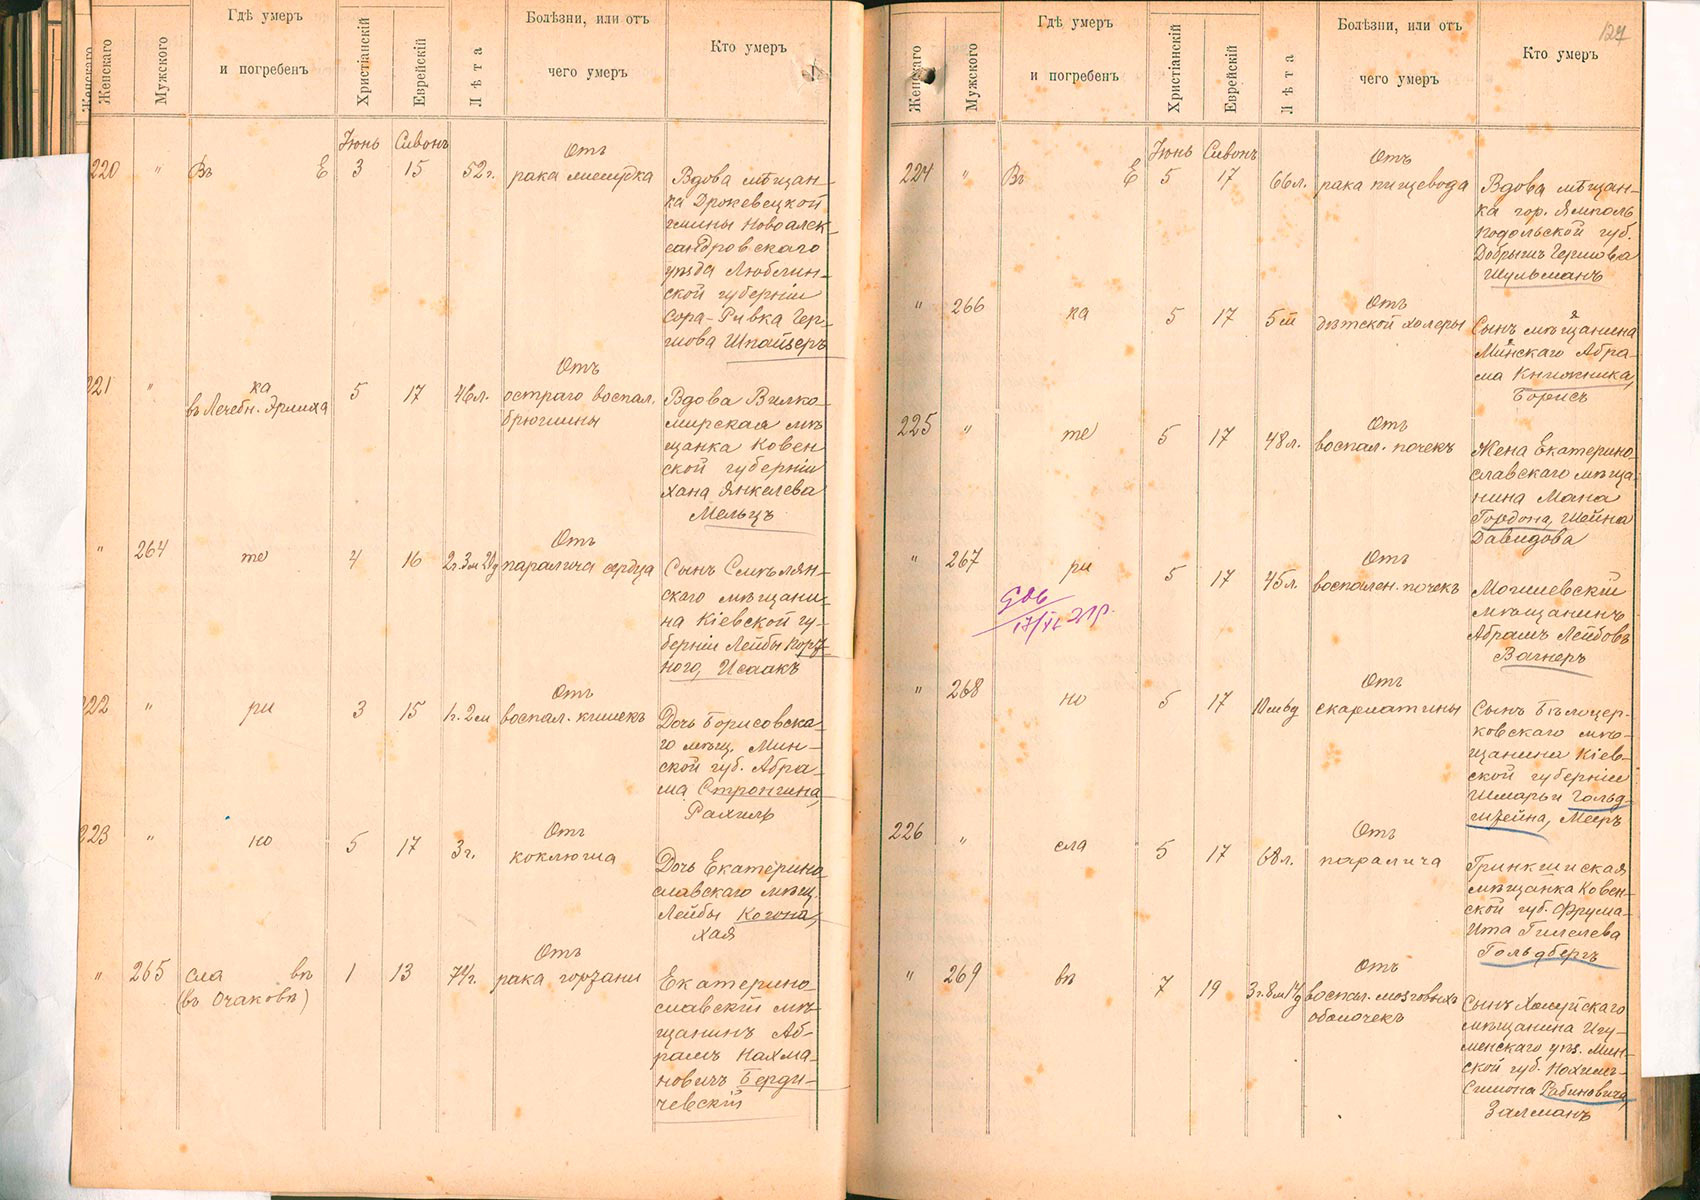 Женскаго
Женскаго
Мужского
Гдѣ умеръ
и погребенъ
Христіанскій
Еврейскій
Лѣта
Болѣзни, или отъ
чего умеръ
Кто умеръ
Іюнь Сивонъ
220 " Въ Е 3 15 52г.
Отъ
рака желудка
Вдова мѣщан-
ка
гмины Новоалек-
сандровскаго
уѣзда Люблин-
ской губерніи
Сора-Ривка Гер-
шова Шпайзеръ
221 " ка
въ Лечебн. Эрлиха
5 17 46л.
Отъ
остраго воспал.
брюшины
Вдова Вилко-
мирская мѣ-
щанка Ковен
ской губерніи
Хана Янкелева
Мельцъ
" 264 те 4 16 2г.3м.21д
Отъ
паралича сердца
Сынъ Смѣлян-
скаго мѣщани-
на Кіевской гу-
берніи Лейбы
Исаакъ
222 " ри 3 15 1г. 2м
Отъ
воспал. кишекъ
Дочь Борисовска-
го мѣщ. Мин-
ской губ. Абра-
ма Стронгина,
Рахиль
223 " но 5 17 3г.
Отъ
коклюша
Дочь Екатерино-
славскаго мѣщ.
Лейбы Когона,
Хая
" 265 сла въ
(въ Очаковѣ)
1 13 74г.
Отъ
рака гортани
Екатерино-
славскій мѣ-
щанинъ Аб-
рамъ Нахма-
новичъ Берди-
чевскій
127
Женскаго
Мужского
Гдѣ умеръ
и погребенъ
Христіанскій
Еврейскій
Лѣта
Болѣзни, или отъ
чего умеръ
Кто умеръ
Іюнь Сивонъ
224 " Въ Е 5 17 66л.
Отъ
рака пищевода
Вдова мѣщан-
ка гор. Ямполь
Подольской губ.
Добрышъ Гершова
Шульманъ
" 266 ка 5 17 5м
Отъ
дѣтской холеры
Сынъ мѣщанина
Минскаго Абра-
ма Книжника,
Борисъ
225 " те 5 17 48л.
Отъ
воспал. почекъ
Жена Екатерино-
славскаго мѣща-
нина Мана
Гордона, Шейна
Давидова
" 267 ри 5 17 45л.
Отъ
воспален. почекъ
Могилевскій
мѣщанинъ
Абрамъ Лейбовъ
Вагнеръ
" 268 но 5 17
Отъ
скарлатины
Сынъ Бѣлоцер-
ковскаго мѣ-
щанина Кіев-
ской губерніи
Шмарьи Гольд-
штейна, Мееръ
226 " сла 5 17 68л.
Отъ
паралича
Гринкишская
мѣщанка Ковен-
ской губ. Фрума-
Ита Гилелева
Гольдбергъ
" 269 въ 7 19 3г.8м.14д
Отъ
воспал. мозговыхъ
оболочекъ
Сынъ Холуйскаго
мѣщанина Игу-
менскаго уѣз. Мин-
ской губ. Нохимъ-
Симона Рабиновича,
Залманъ